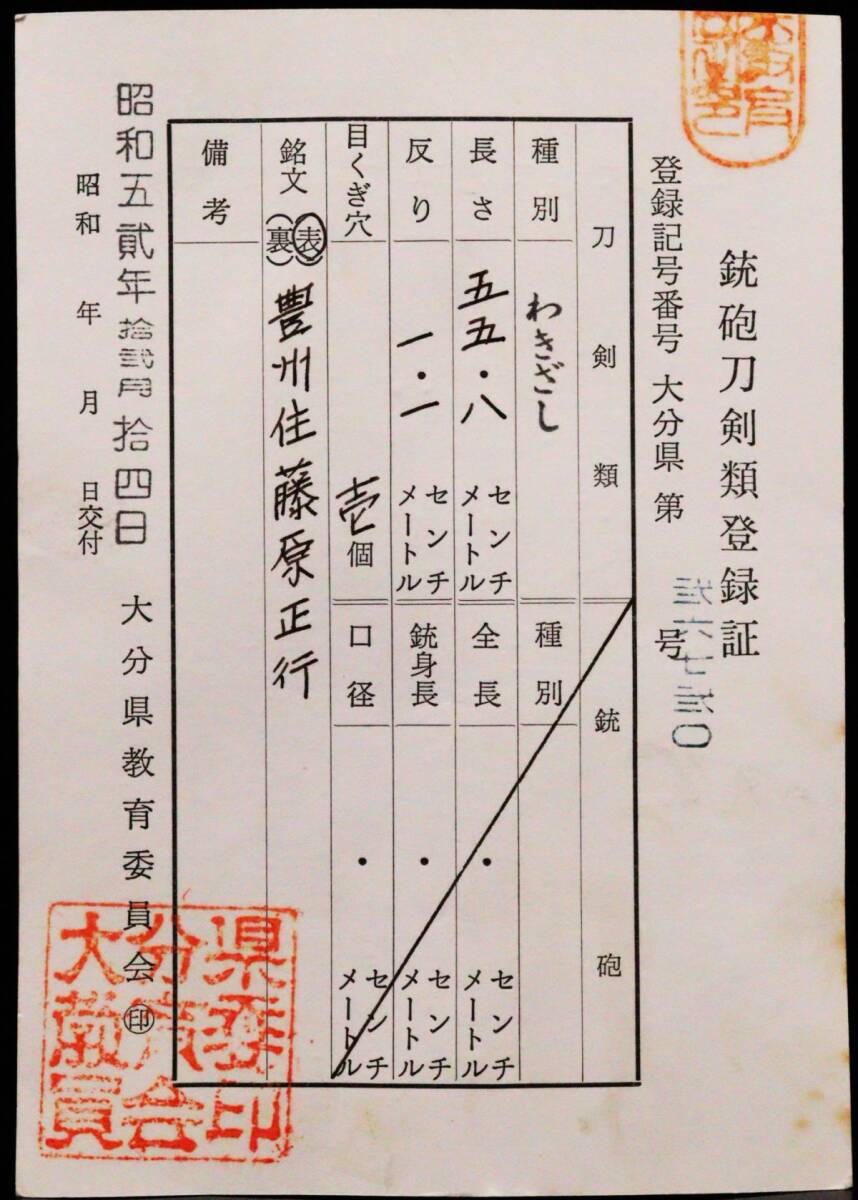 銃砲刀剣類登録証
登録記号番号 大分県 第 号
刀剣類
種別 わきざし
長さ 五五・八 センチメートル
反り 一・一 センチメートル
目くぎ穴 壱個
銘文 (表)(裏) 豊州住藤原正行
備考
銃砲
種別
全長 ・ センチメートル
銃身長 ・ センチメートル
口径 ・ センチメートル
昭和五貳年拾弐月拾四日
昭和 年 月 日交付
大分県教育委員会 ㊞
県委印
分育会
大教員